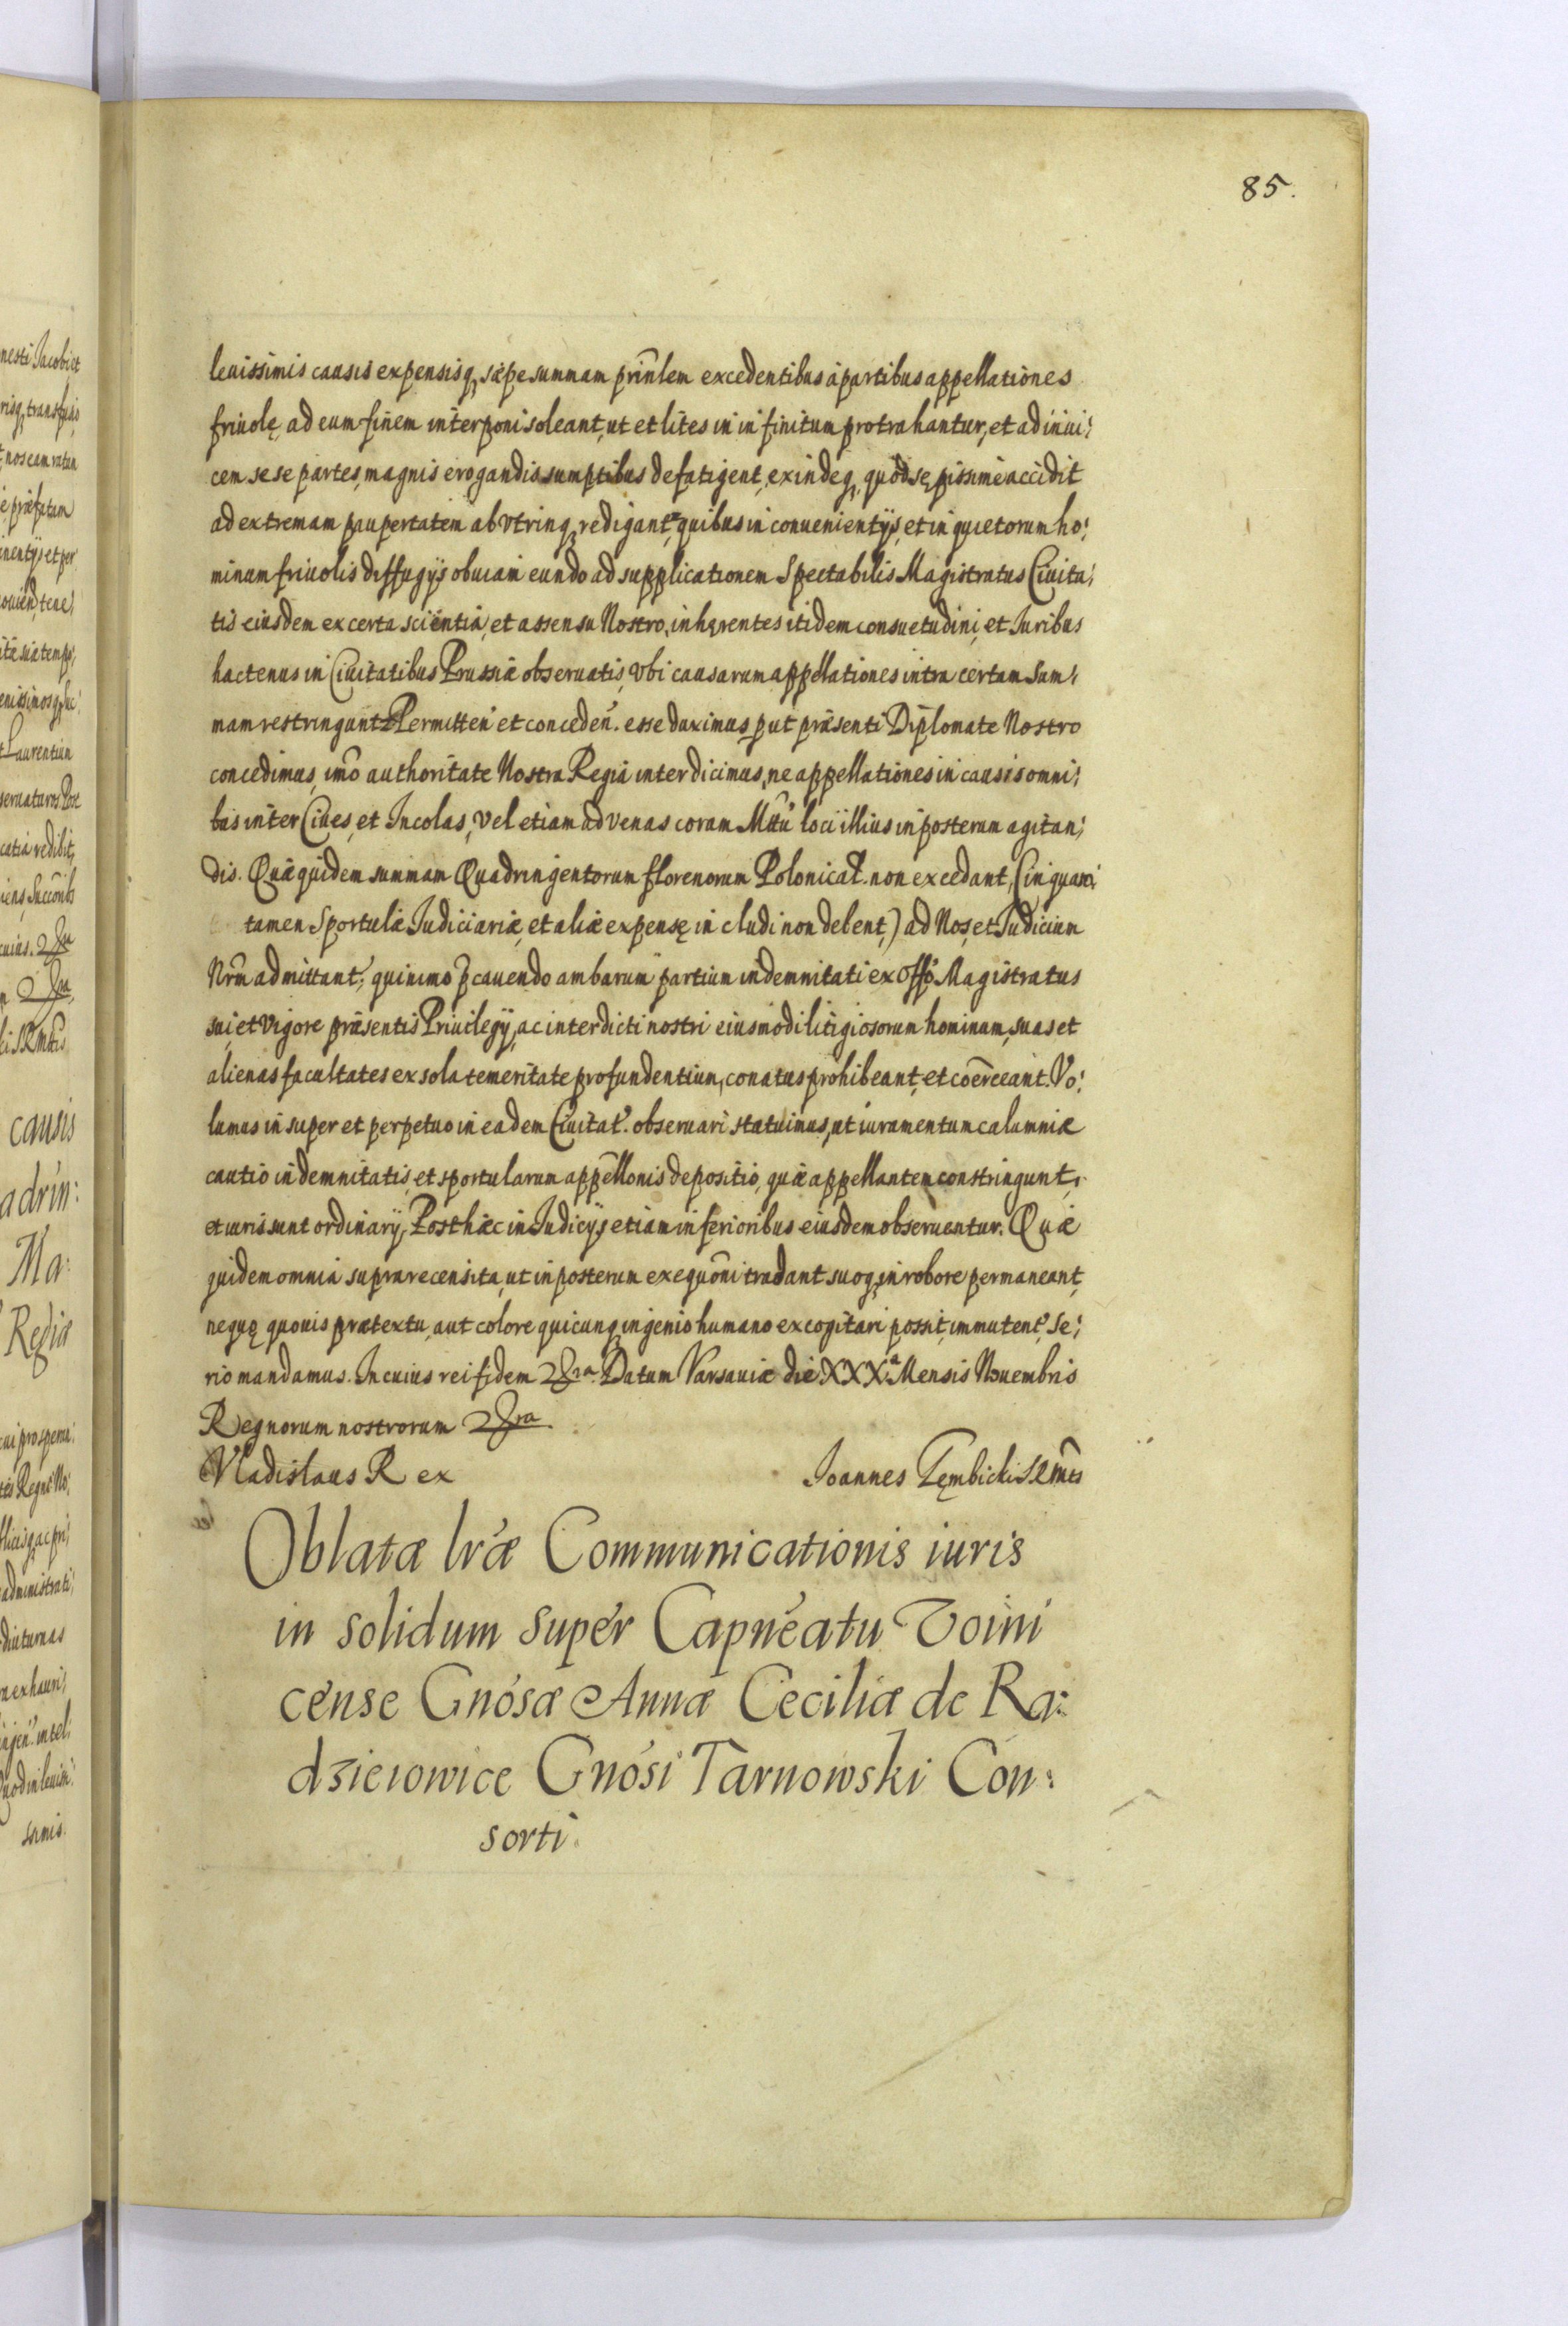 85.
leuissimis causis expensisq, sæpe summam prinlem excedentibus à partibus appellationes
friuolę, ad eum finem interponi soleant, ut et lites in infinitum protrahantur, et ad inui:
cem sese partes, magnis erogandis sumptibus defatigent, exindeq, quòd sępissimè accidit
ad extremam paupertatem ab vtrinq, redigant, quibus inconuenientijs, et inquietorum ho:
minum friuolis diffugijs obuiam eundo ad supplicationem Spectabilis Magistratus Ciuita:
tis eiusdem ex certa scientia, et assensu Nostro, inhęrentes itidem consuetudini, et Iuribus
hactenus in Ciuitatibus Prussiæ obseruatis, vbi causarum appellationes intra certam Sum:
mam restringunt Permitten et conceden. esse duximus, put præsenti Diplomate Nostro
concedimus, imò authoritate Nostra Regià interdicimus, ne appellationes in causis omni:
bus inter Ciues, et Incolas, vel etiam aduenas coram Mttu loci illius inposterum agitan:
dis. Quæ quidem summam Quadringentorum florenorum Polonical. non excedant, (in quam
tamen Sportulæ Iudiciariæ, et aliæ expensę includi non debent,) ad Nos, et Iudicium
Nrm admittant, quinimo pcauendo ambarum partium indemnitati ex Offo Magistratus
sui, et Vigore præsentis Priuilegij, ac interdicti nostri eiusmodi litigiosorum hominum, suas et
alienas facultates ex sola temeritate profundentium, conatus prohibeant, et coërceant. Vo:
lumus insuper et perpetuo in eadem Ciuitat. obseruari statuimus, ut iuramentum calumniæ
cautio indemnitatis, et sportularum appellonis depositio, quæ appellantem constringunt,
et iuris sunt ordinarij, Posthæc in Iudicijs etiam inferioribus eiusdem obseruentur. Quæ
quidem omnia supra recensita, ut inposterum exequoni tradant suoq, in robore permaneant,
nequę quouis prætextu, aut colore quicunq, ingenio humano excogitari possit, immutent, Se:
rio mandamus. In cuius rei fidem &ra. Datum Varsauiæ die XXXa Mensis Nouembris
Regnorum nostrorum &ra
Vladislaus Rex Ioannes Gembicki SRMtis
Oblatæ lræ Communicationis iuris
in solidum super Capneatu Voini
cense Gnosæ Annæ Ceciliæ de Ra:
dzieiowice Gnosi Tarnowski Con:
sorti.